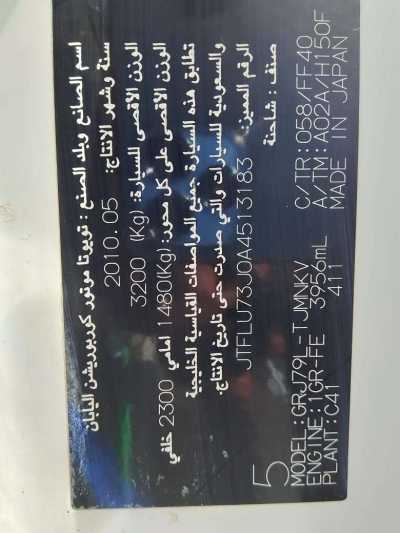 اسم الصانع وبلد الصنع : تويوتا موتور كوربوريشن اليابان
سنة وشهر الانتاج: 2010.05
الوزن الأقصى للسيارة: 3200 (Kg)
الوزن الأقصى على كل محور: 1480(Kg) امامي 2300 خلفي
تطابق هذه السيارة جميع المواصفات القياسية الخليجية
والسعودية للسيارات والتي صدرت حتى تاريخ الانتاج.
الرقم المميز: JTFLU73J0A4513183
صنف : شاحنة
5
MODEL:GRJ79L-TJMNKV C/TR:058/FF40
ENGINE:1GR-FE 3956mL A/TM:A02A/H150F
PLANT:C41 411 MADE IN JAPAN